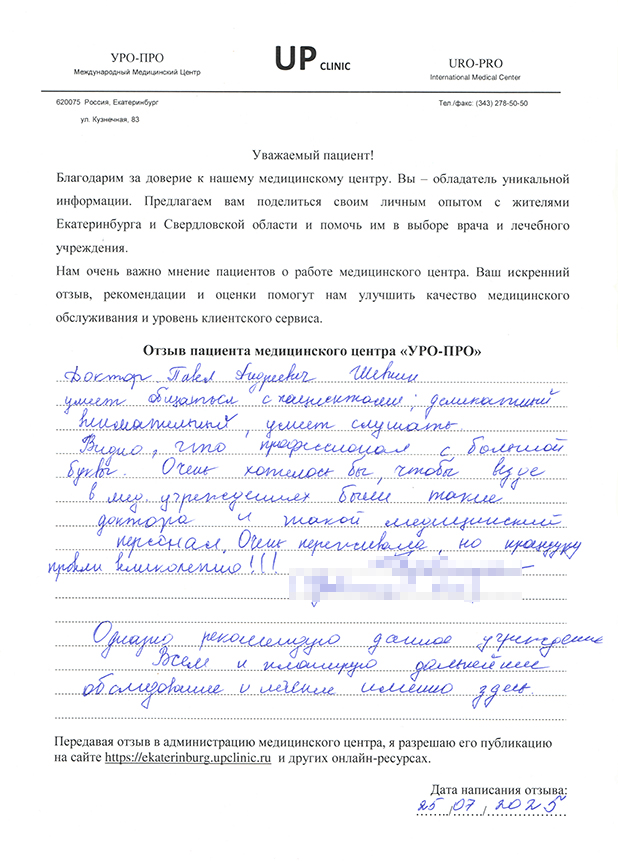 УРО-ПРО
Международный Медицинский Центр
UP CLINIC
URO-PRO
International Medical Center
620075 Россия, Екатеринбург
ул. Кузнечная, 83
Тел./факс: (343) 278-50-50
Уважаемый пациент!
Благодарим за доверие к нашему медицинскому центру. Вы – обладатель уникальной
информации. Предлагаем вам поделиться своим личным опытом с жителями
Екатеринбурга и Свердловской области и помочь им в выборе врача и лечебного
учреждения.
Нам очень важно мнение пациентов о работе медицинского центра. Ваш искренний
отзыв, рекомендации и оценки помогут нам улучшить качество медицинского
обслуживания и уровень клиентского сервиса.
Отзыв пациента медицинского центра «УРО-ПРО»
Доктор Павел Андреевич
умеет общаться с пациентами; деликатный
внимательный, умеет слушать.
Видно, что профессионал с большой
буквы. Очень хотелось бы, чтобы везде
в мед. учреждениях были такие
доктора и такой медицинский
персонал. Очень переживала, но процедуру
провели великолепно!!!
Однозно рекомендую данное учреждение
Всем и планирую дальнейшее
обследование и лечение именно здесь.
Передавая отзыв в администрацию медицинского центра, я разрешаю его публикацию
на сайте https://ekaterinburg.upclinic.ru и других онлайн-ресурсах.
Дата написания отзыва:
25.07.2025